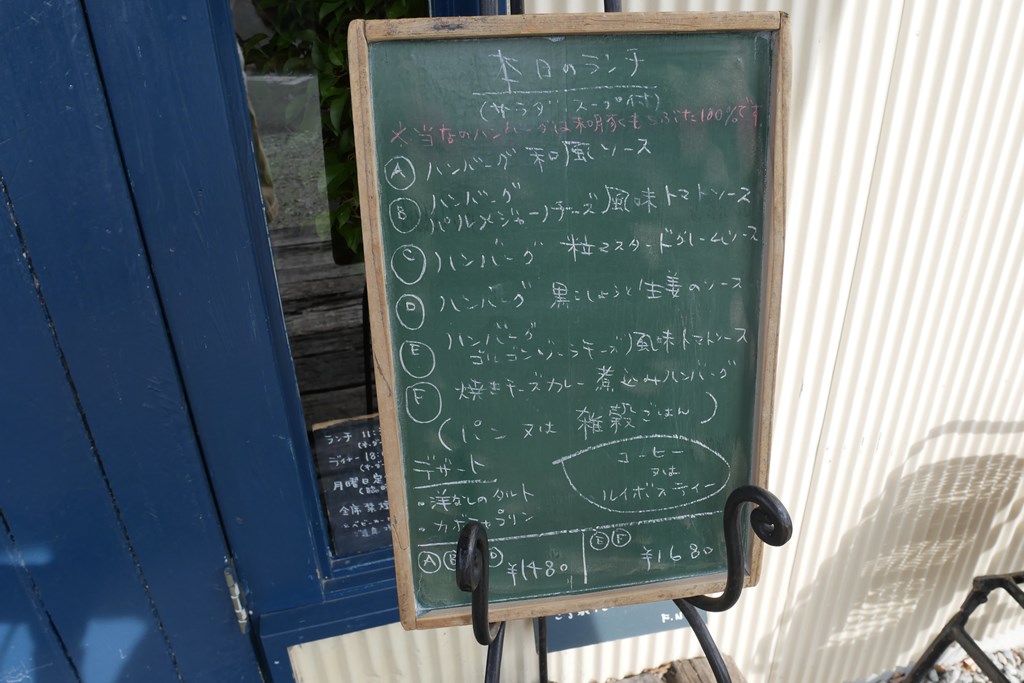 本日のランチ
(サラダ スープ付)
※当店のハンバーグは和豚もちぶた100%です
Ⓐ ハンバーグ 和風ソース
Ⓑ ハンバーグ
パルメジャーノチーズ風味トマトソース
Ⓒ ハンバーグ 粒マスタードクリームソース
Ⓓ ハンバーグ 黒こしょうと生姜のソース
Ⓔ ハンバーグ
ゴルゴンゾーラチーズ風味トマトソース
Ⓕ 焼きチーズカレー 煮込みハンバーグ
(パン 又は 雑穀ごはん)
デザート
・洋なしのタルト
・カボチャプリン
コーヒー
又は
ルイボスティー
Ⓐ Ⓑ Ⓓ ¥1480
Ⓔ Ⓕ ¥1680
ランチ 11:
ディナー 18:
月曜日定
全席禁煙